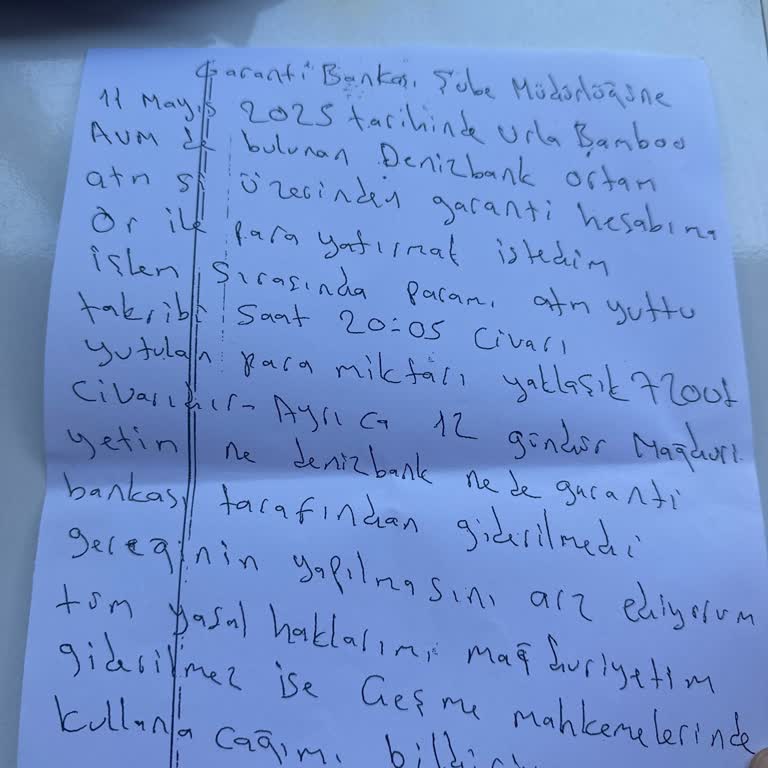 Garanti Bankası Şube Müdürlüğüne
11 Mayıs 2025 tarihinde Urla Bamboo
AVM de bulunan Denizbank ortam
atm si üzerinden garanti hesabıma
Qr ile para yatırmak istedim
işlem sırasında paramı atm yuttu
takribi saat 20:05 civarı
yutulan para miktarı yaklaşık 7200₺
civarıdır. Ayrıca 12 gündür Mağduri
yetim ne denizbank ne de garanti
bankası tarafından giderilmedi
gereğinin yapılmasını arz ediyorum
tüm yasal haklarımı mağduriyetim
giderilmez ise Çeşme mahkemelerinde
kullanacağımı